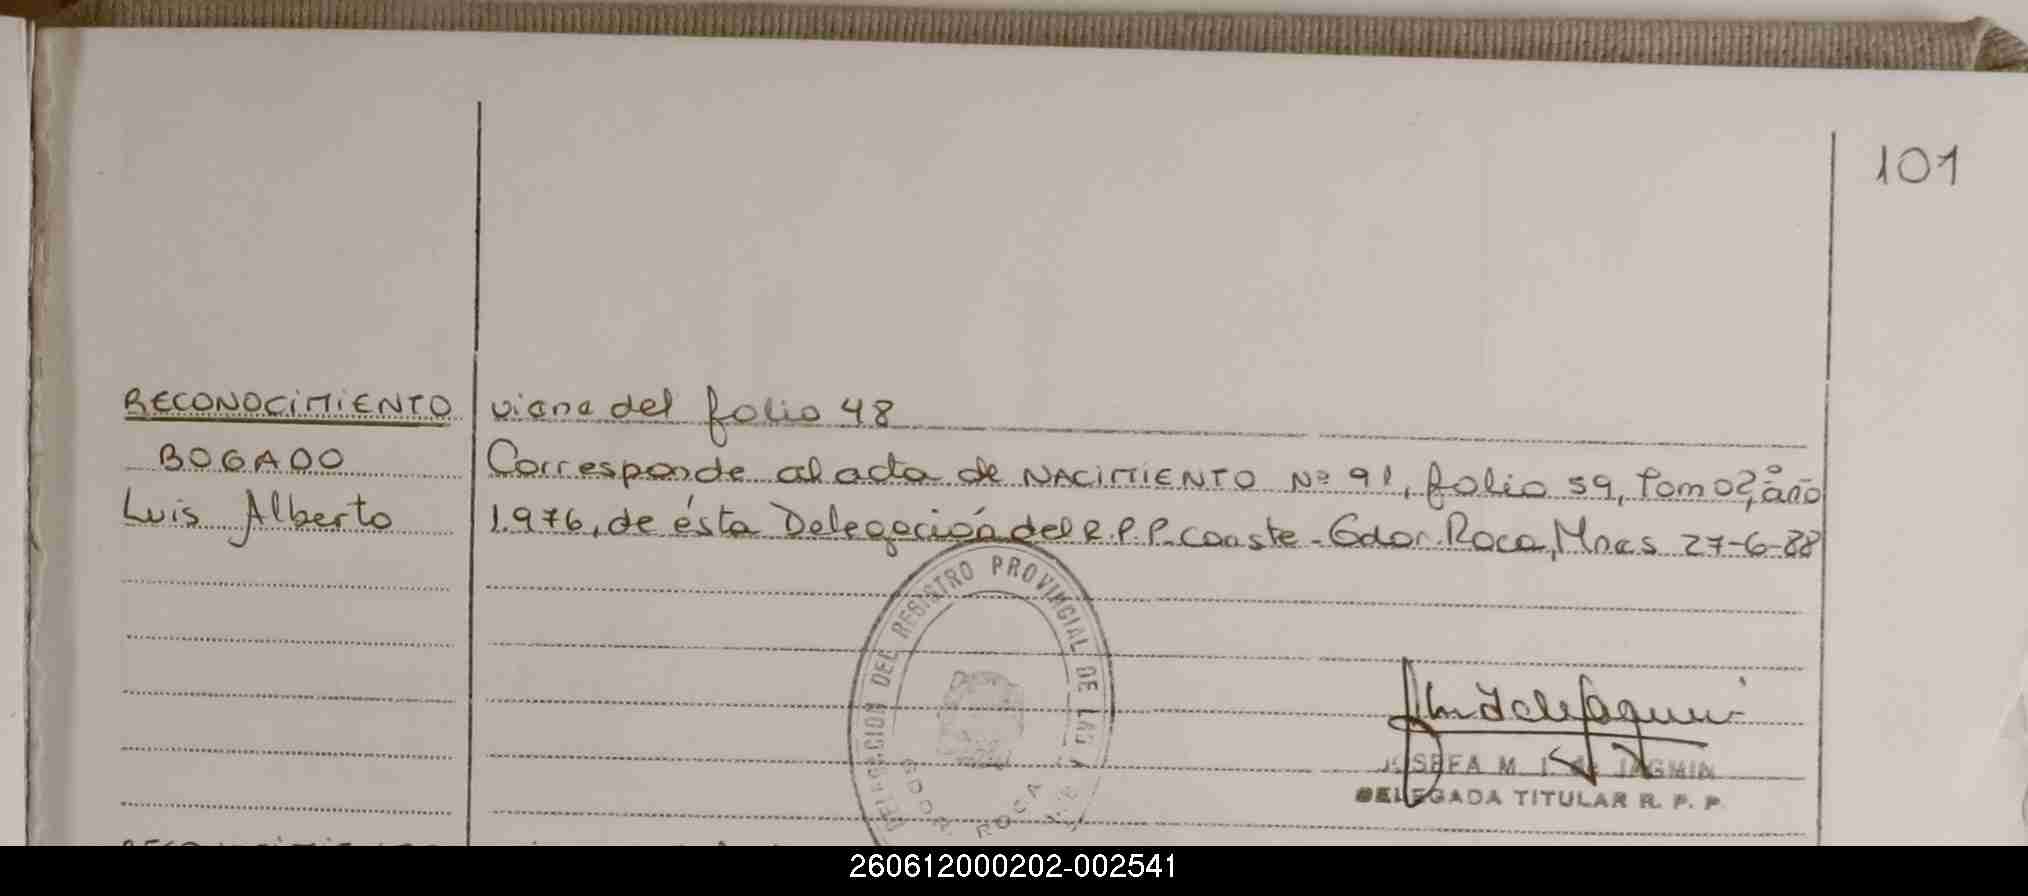 101
RECONOCIMIENTO viene del folio 48
BOGADO Corresponde al acta de NACIMIENTO Nº 91, folio 59, Tomo 2º, año
Luis Alberto 1.976, de ésta Delegación del R.P.P. Conste - Gdor. Roca, Mnes 27-6-88
DELEGACION DEL REGISTRO PROVINCIAL DE LAS
GDOR ROCA
JOSEFA M. I. de JAGMIN
DELEGADA TITULAR R. P. P.
260612000202-002541